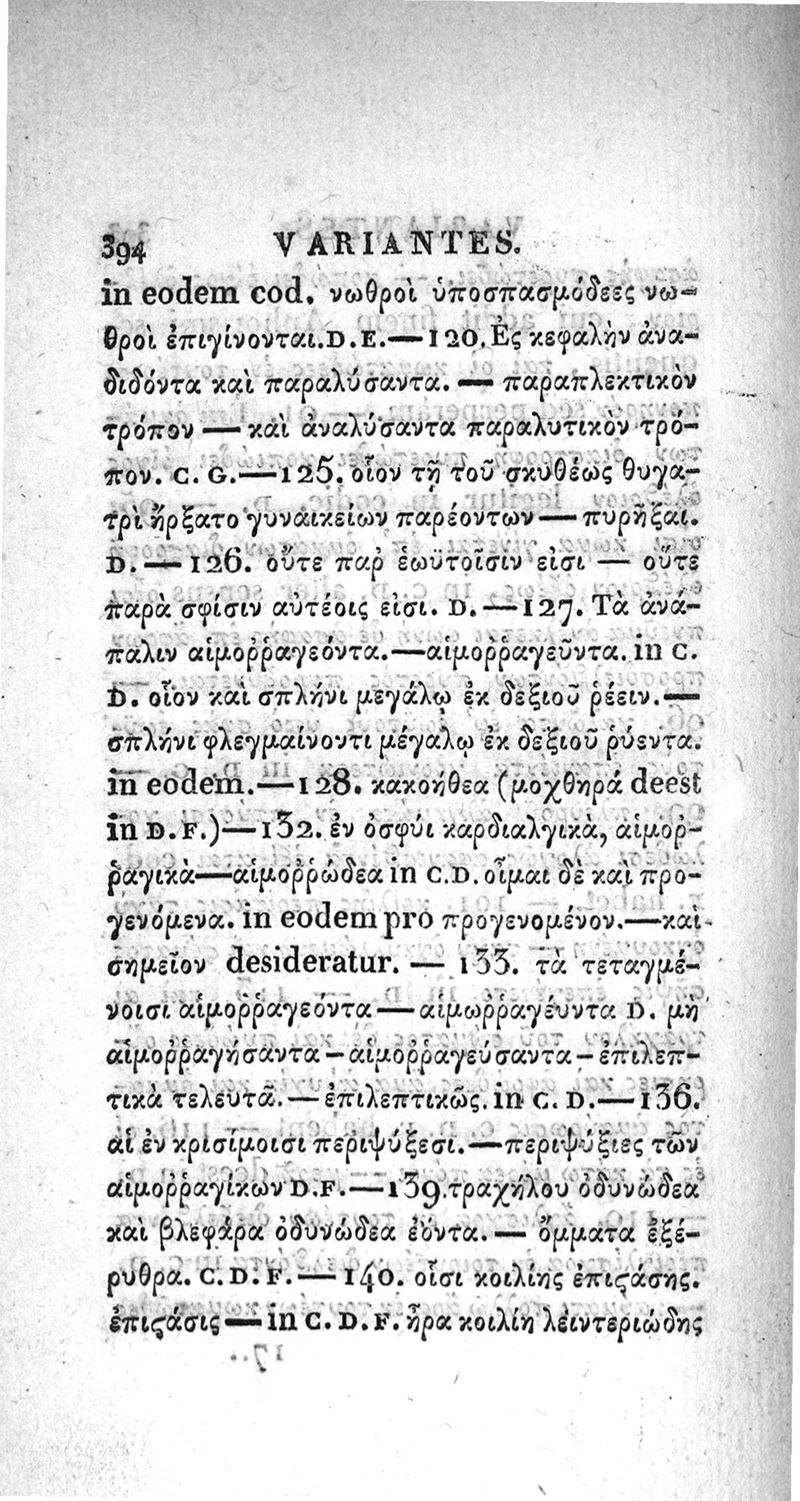 394 VARIANTES.
in eodem cod. νωθροὶ ὑποσπασμόδεες νω-
θροὶ ἐπιγίνονται. D. E. — 120. Ἐς κεφαλὴν ἀνα-
διδόντα καὶ παραλύσαντα. — παραπλεκτικὸν
τρόπον — καὶ ἀναλύσαντα παραλυτικὸν τρό-
πον. C. G. — 125. οἷον τῇ τοῦ σκυθέως θυγα-
τρὶ ἤρξατο γυναικείων παρέοντων — πυρῆξαι.
D. — 126. οὔτε παρ ἑωϋτοῖσιν εἰσι — οὔτε
παρὰ σφίσιν αὐτέοις εἰσι. D. — 127. Τὰ ἀνά-
παλιν αἱμοῤῥαγεόντα. — αἱμοῤῥαγεῦντα. in C.
D. οἷον καὶ σπλήνι μεγάλῳ ἐκ δεξιοῦ ῥέειν. —
σπλήνι φλεγμαίνοντι μέγαλῳ ἐκ δεξιοῦ ῥύεντα.
in eodem. — 128. κακοήθεα (μοχθηρά deest
in D. F.) — 132. ἐν ὀσφύι καρδιαλγικὰ, αἱμοῤ-
ῥαγικὰ — αἱμοῤῥώδεα in C. D. οἶμαι δὲ καὶ προ-
γενόμενα. in eodem pro προγενομένον. — καὶ
σημεῖον desideratur. — 133. τὰ τεταγμέ-
νοισι αἱμοῤῥαγεόντα — αἱμωῤῥαγέυντα D. μὴ
αἱμοῤῥαγήσαντα — αἱμοῤῥαγεύσαντα — ἐπιλεπ-
τικὰ τελευτᾶ. — ἐπιλεπτικῶς. in C. D. — 136.
αἱ ἐν κρισίμοισι περιψύξεσι. — περιψύξιες τῶν
αἱμοῤῥαγίκων D. F. — 139. τραχήλου ὀδυνώδεα
καὶ βλεφάρα ὀδυνώδεα ἐόντα. — ὄμματα ἐξέ-
ρυθρα. C. D. F. — 140. οἷσι κοιλίης ἐπιϛάσης.
ἐπιϛάσις — in C. D. F. ἦρα κοιλίη λειντεριώδης